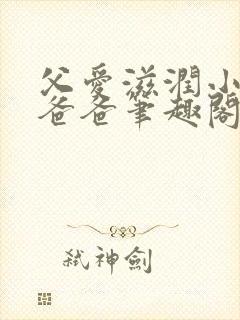 父愛滋潤小
爸爸筆趣閣
弒神劍